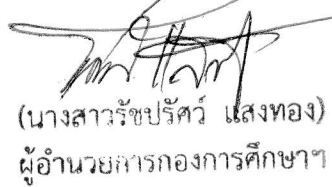 (นางสาวรัชปรัศว์ แสงทอง)
ผู้อำนวยการกองการศึกษาฯ